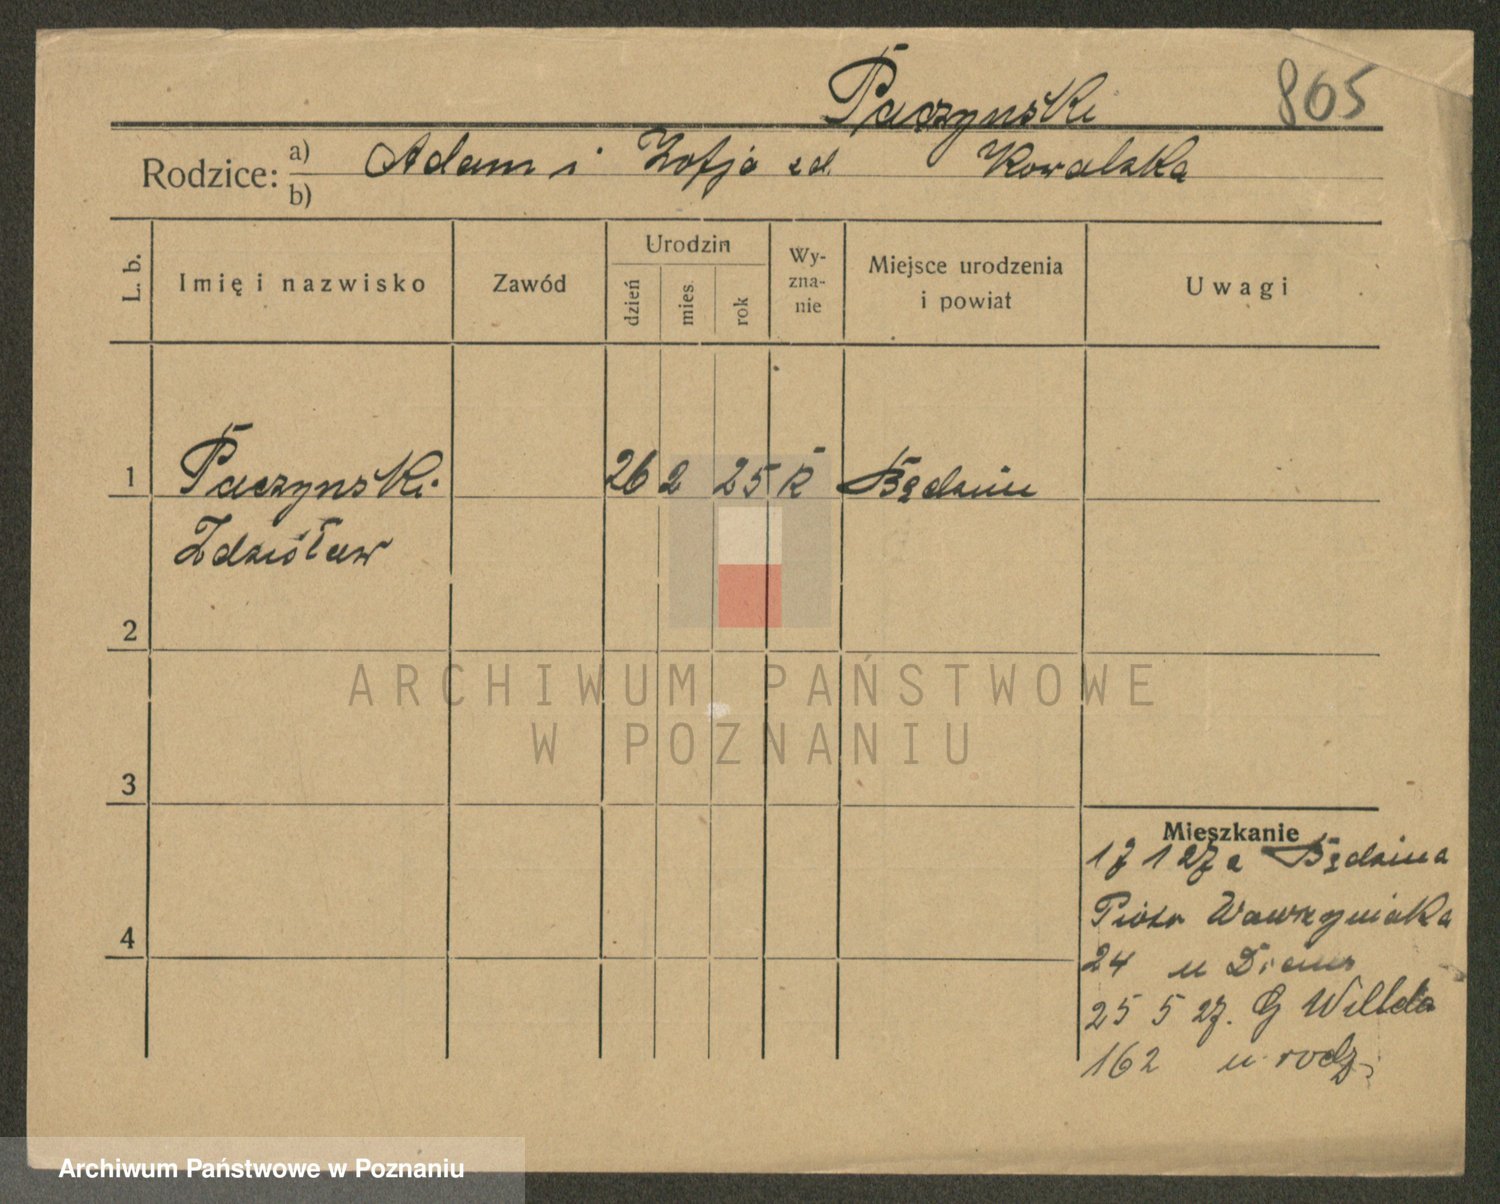 Paczynski 865
Rodzice: a) Adam i Zofja zd. Kowalska
b)
L. b. Imię i nazwisko Zawód Urodzin dzień mies. rok Wyznanie Miejsce urodzenia i powiat Uwagi
1 Paczynski 26 2 25 K Będzin
Zdzisław
2
3
4
Mieszkanie
17 1 27 z Będzina
Piotr Wawrzyniaka
24 u
25 5 27. G Wilda
162 u rodz.
ARCHIWUM PAŃSTWOWE
W POZNANIU
Archiwum Państwowe w Poznaniu